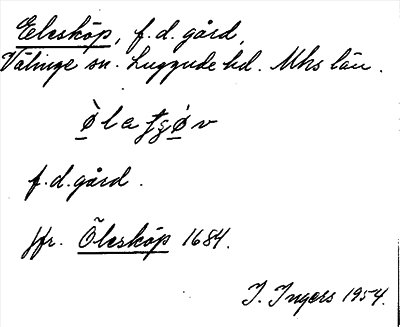 Elesköp, f.d. gård,
Välinge sn. Luggude hd. Mhs län.
f.d. gård.
Jfr. Öleskop 1684.
I. Ingers 1954.